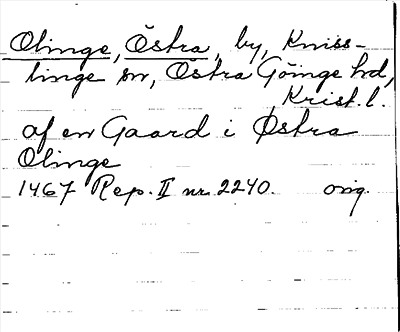 Olinge, Östra, by, Kniss-
linge sn, Östra Göinge hd,
Krist. l.
af en Gaard i Østra
Olinge
1467 Rep. II nr. 2240. orig.